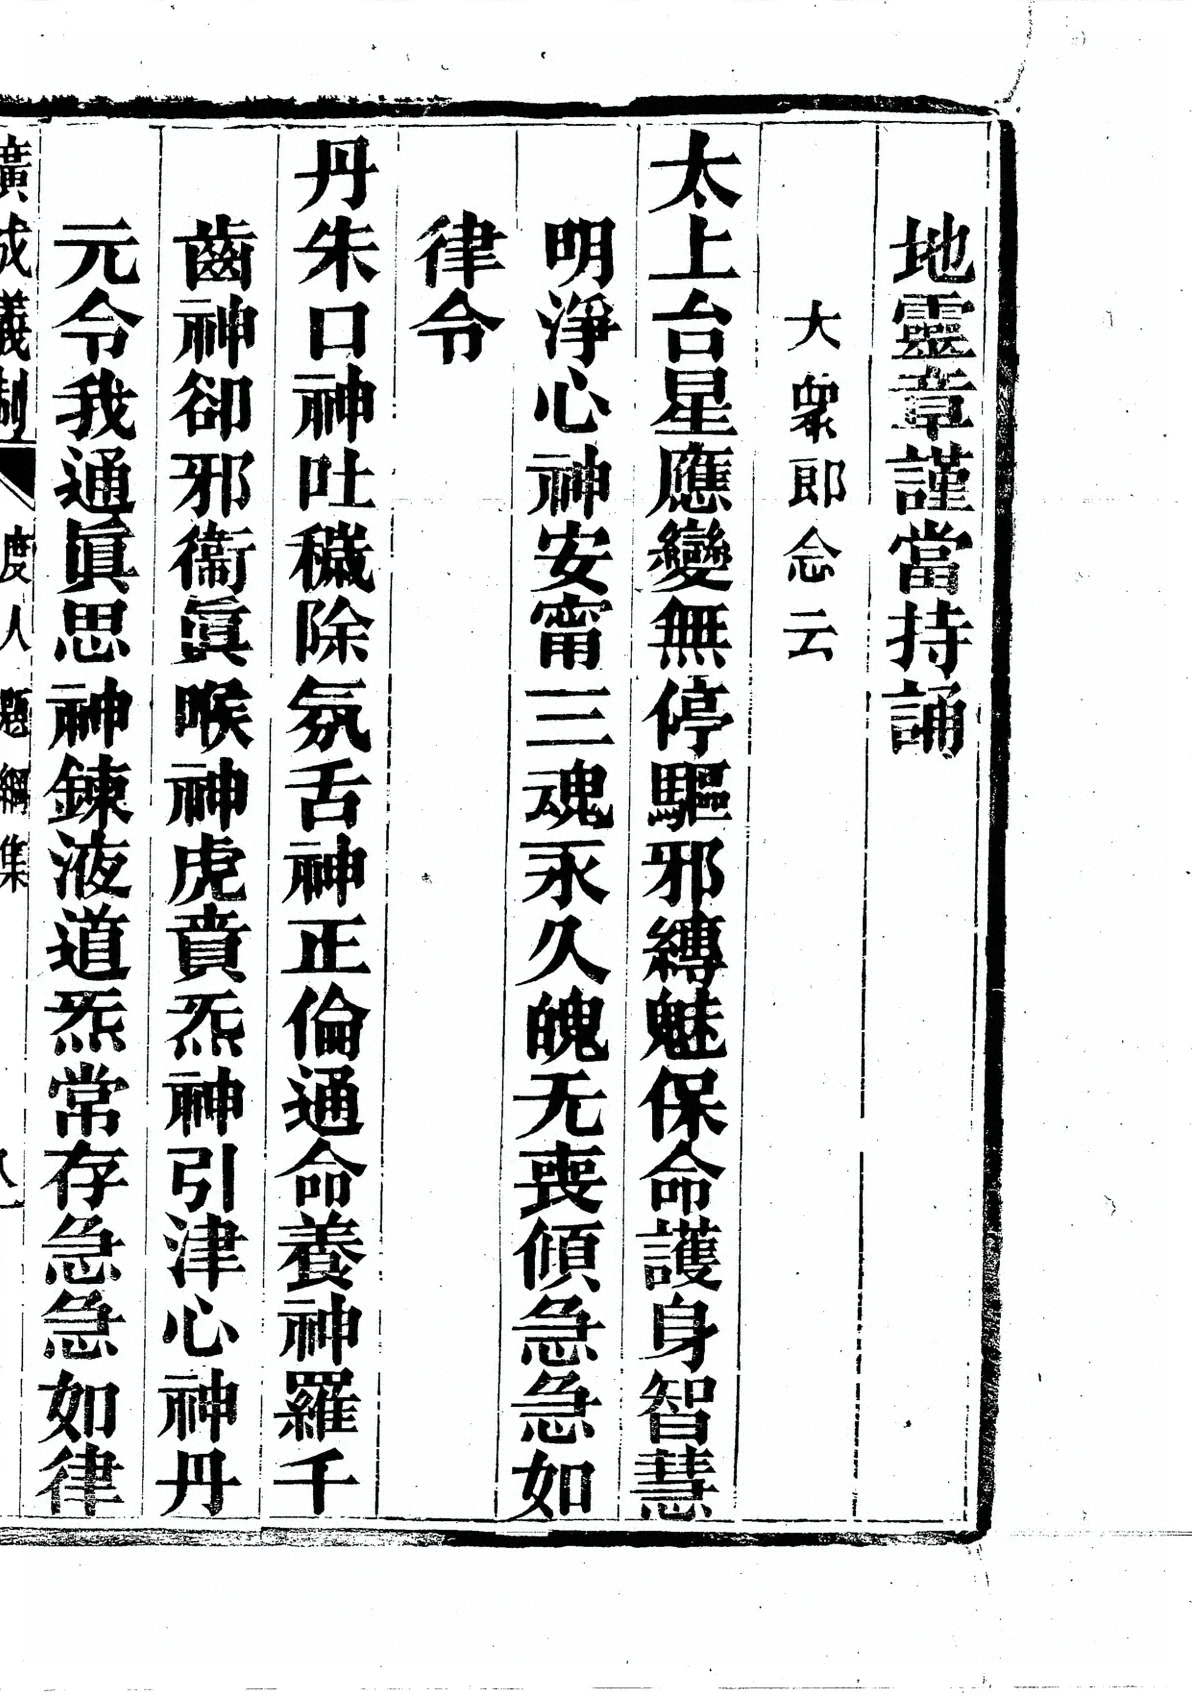 地靈章謹當持誦
大衆郎念云
太上台星應變無停驅邪縛魅保命護身智慧
明淨心神安甯三魂永久魄无喪傾急急如
律令
丹朱口神吐穢除氛舌神正倫通命養神羅千
齒神卻邪衞眞喉神虎賁炁神引津心神丹
元令我通眞思神鍊液道炁常存急急如律
廣成儀制 度人題綱集